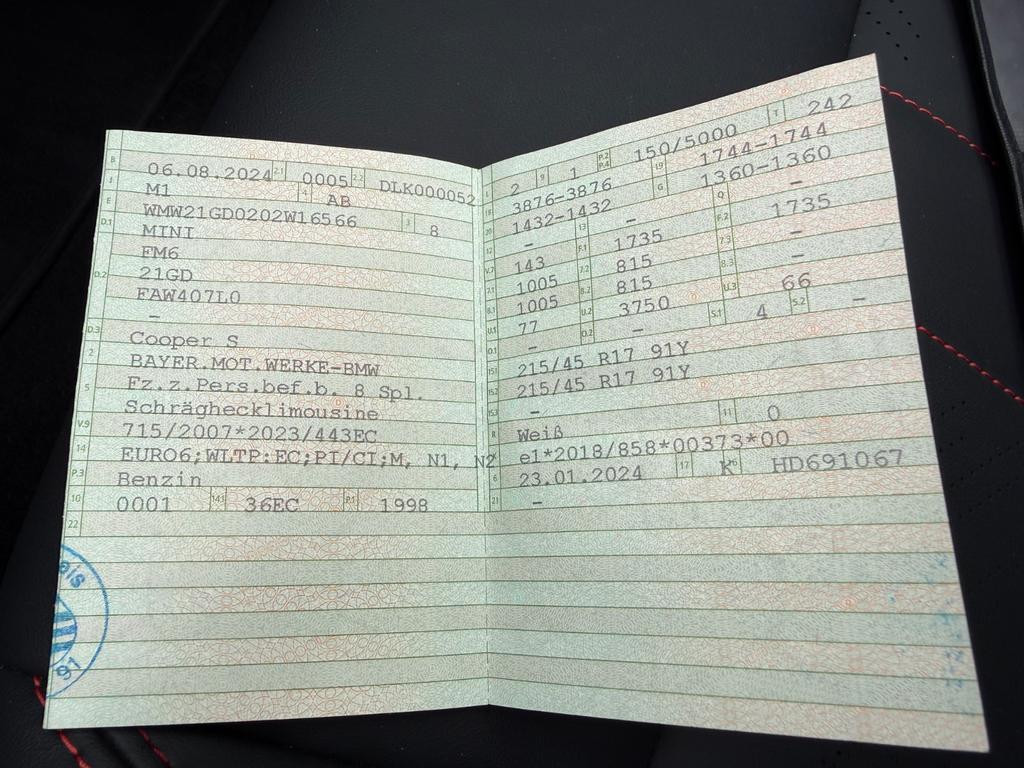 B 06.08.2024 2.1 0005 2.2 DLK000052
J M1 4 AB
E WMW21GD0202W16566 3 8
D.1 MINI
FM6
D.2 21GD
FAW407L0
–
D.3 Cooper S
2 BAYER.MOT.WERKE-BMW
5 Fz.z.Pers.bef.b. 8 Spl.
Schräghecklimousine
V.9 715/2007*2023/443EC
14 EURO6;WLTP:EC;PI/CI;M, N1, N2
P.3 Benzin
10 0001 14.1 36EC P.1 1998
22
ais
91
L 2 9 1 P.2 P.4 150/5000 T 242
18 3876-3876 19 1744-1744
20 1432-1432 G 1360-1360
12 – 13 – Q –
V.7 143 F.1 1735 F.2 1735
7.1 1005 7.2 815 7.3 –
8.1 1005 8.2 815 8.3 –
U.1 77 U.2 3750 U.3 66
O.1 – O.2 – S.1 4 S.2 –
15.1 215/45 R17 91Y
15.2 215/45 R17 91Y
15.3 –
R Weiß 11 0
K e1*2018/858*00373*00
6 23.01.2024 17 K 16 HD691067
21 –